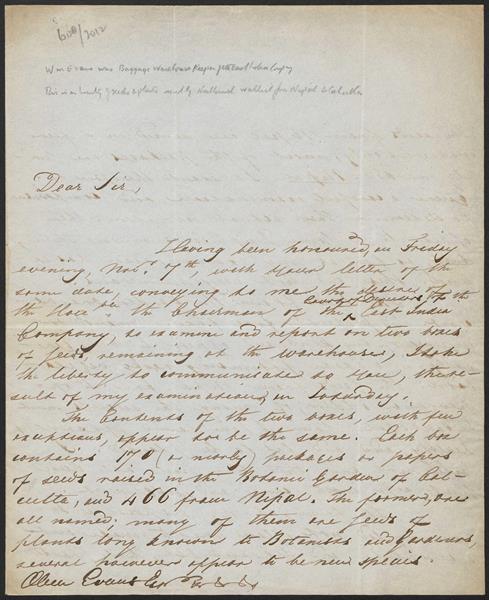 600/2012
Wm Evans was Baggage Warehouse Keeper of the East India Compy
This is a list of seeds & plants sent by Nathaniel Wallich from Nepal & Calcutta
Dear Sir,
Having been honoured, on Friday
evening, Novr. 7th, with your letter of the
same date, conveying to me the desire of
the Honble. the Chairman of the Court of Directors of the East India
Company, to examine and report on two boxes
of seeds remaining at the warehouse, I take
the liberty to communicate to you, the re-
sult of my examination, on Saturday.
The Contents of the two boxes, with few
exceptions, appear to be the same. Each box
contains 170 (or nearly) packages or papers
of seeds raised in the Botanic Garden of Cal-
cutta, and 466 from Nepal. The former, are
all named; many of them are seeds of
plants long known to Botanists and Gardeners,
several however appear to be new species.
Evans Esqr &c &c &c